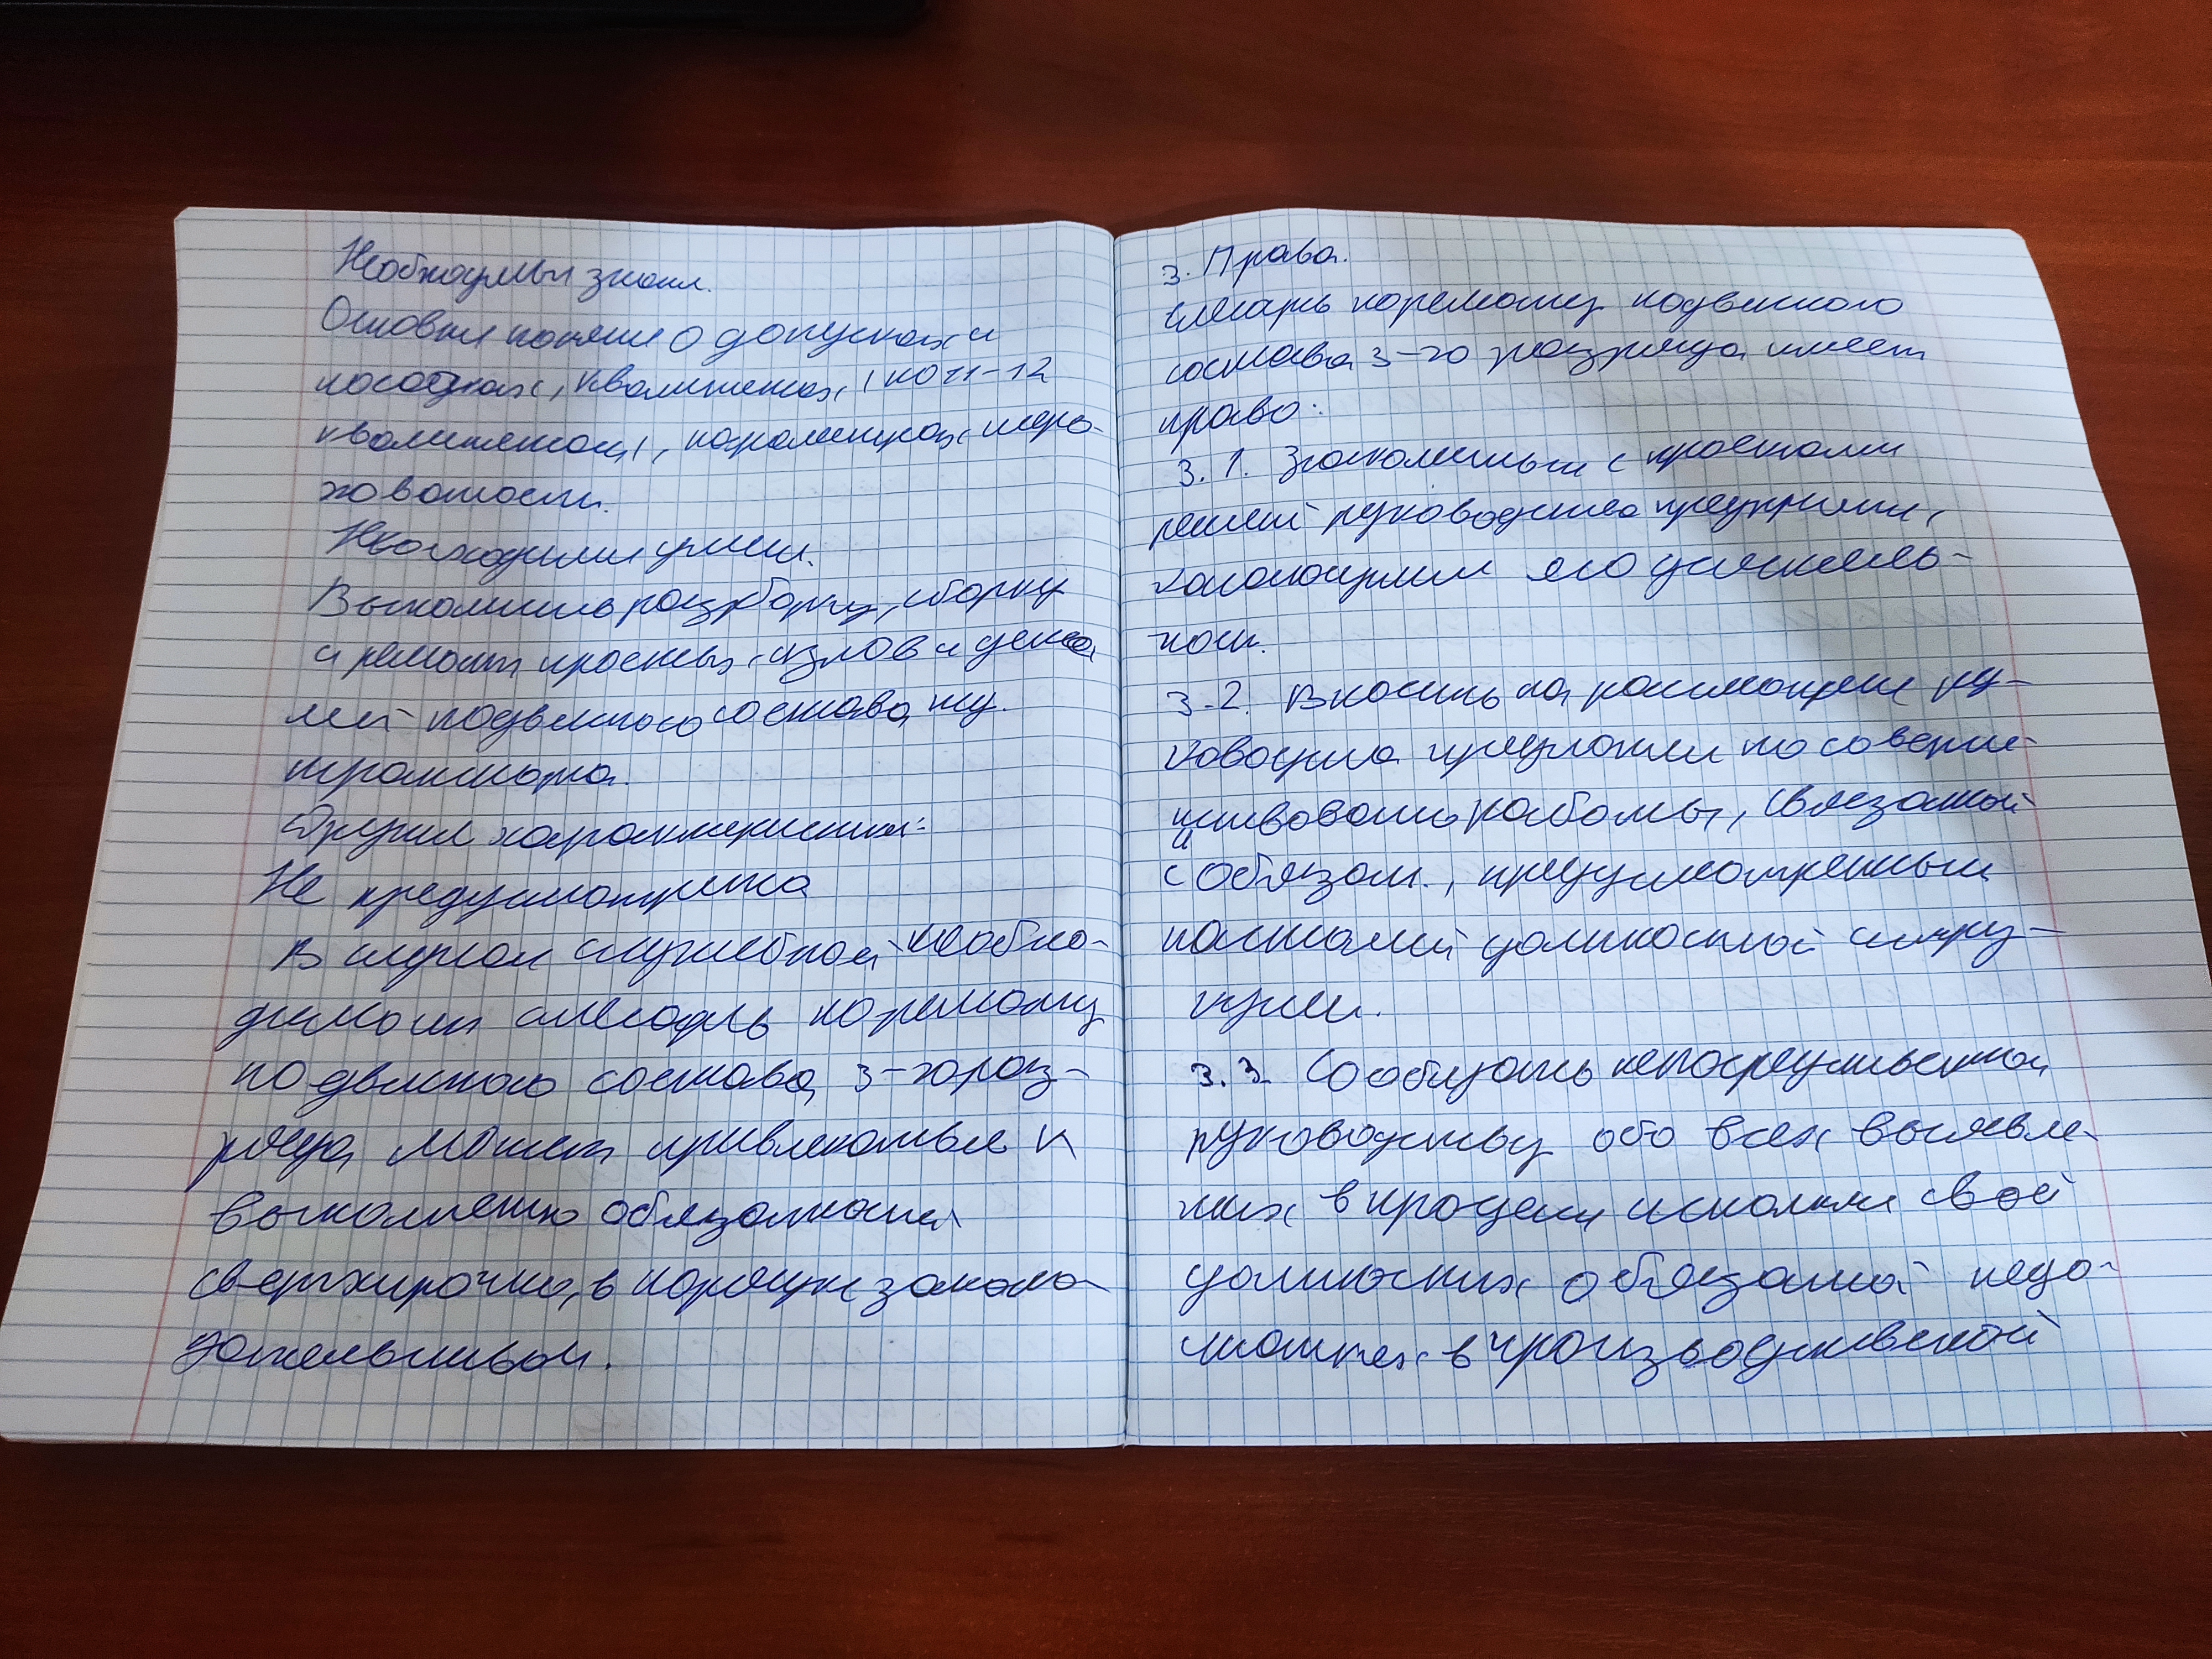 Необходимы знани.
Основни поняти о допусках и
посадках, квалитетах, по 11-12
квалитетах, параметрах шеро-
ховатости.
Необходими умени.
Выполнить разборку, сборку
и ремонт простых узлов и дета
лей подвижного состава жд.
транспорта.
Други характеристики:
Не предусмотрено
В случаи служебной необхо-
димости слесарь по ремонту
подвижного состава 3-го раз-
ряда может привлекаться к
выполнению обязанностей
сверхурочно, в порядке законо-
дательством.
3. Права.
Слесарь по ремонту подвижного
состава 3-го разряда имеет
право:
3.1. Знакомиться с проектами
решений руководства предприятия,
касающимися его деятель-
ности.
3.2. Вносить на рассмотрение ру-
ководства предложения по соверше-
нствованию работы, связанной
с обязан., предусмотренными
настоящей должностной инстру-
кции.
3.3. Сообщать непосредственно
руководству обо всех выявле-
нных в процессе исполнен своей
должностных обязанностей недо-
статках в производственной